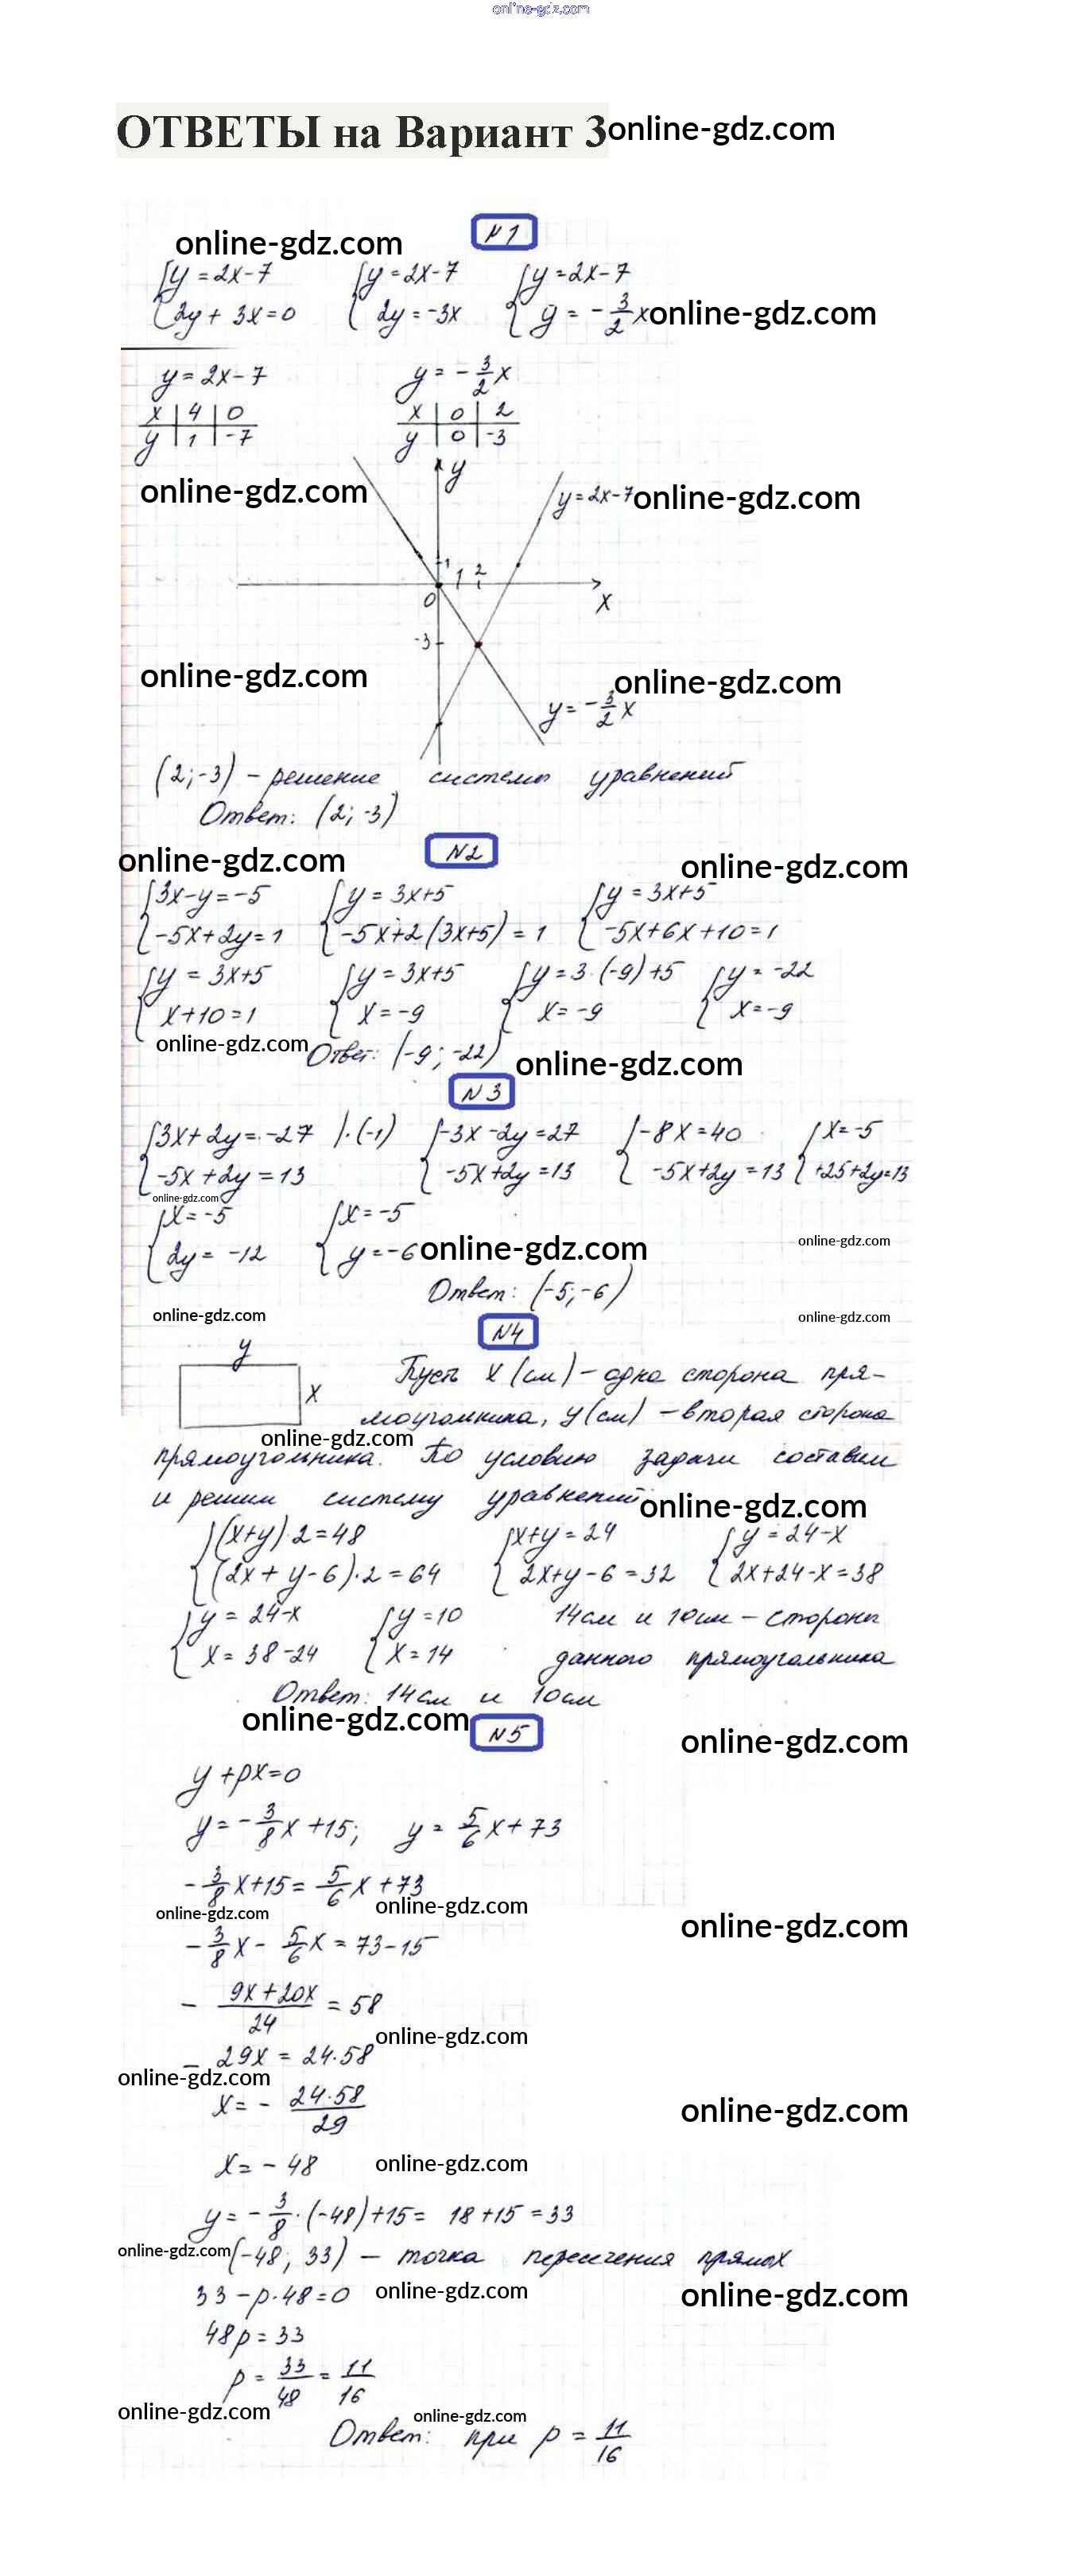 online-gdz.com
ОТВЕТЫ на Вариант 3 online-gdz.com
N1
online-gdz.com
{y = 2x-7 {y = 2x-7 {y = 2x-7
{2y + 3x = 0 {2y = -3x {y = -3/2 x online-gdz.com
y = 2x-7 y = -3/2 x
x | 4 | 0 x | 0 | 2
y | 1 | -7 y | 0 | -3
online-gdz.com y y = 2x-7 online-gdz.com
1 1 2
0 x
-3
online-gdz.com online-gdz.com
y = -3/2 x
(2; -3) - решение системы уравнений
Ответ: (2; -3)
N2
online-gdz.com online-gdz.com
{3x-y = -5 {y = 3x+5 {y = 3x+5
{-5x+2y = 1 {-5x+2(3x+5) = 1 {-5x+6x+10 = 1
{y = 3x+5 {y = 3x+5 {y = 3·(-9)+5 {y = -22
{x+10 = 1 {x = -9 {x = -9 {x = -9
online-gdz.com Ответ: (-9; -22) online-gdz.com
N3
{3x+2y = -27 |·(-1) {-3x-2y = 27 {-8x = 40 {x = -5
{-5x+2y = 13 {-5x+2y = 13 {-5x+2y = 13 {+25+2y = 13
online-gdz.com
{x = -5 {x = -5
{2y = -12 {y = -6 online-gdz.com online-gdz.com
Ответ: (-5; -6)
online-gdz.com online-gdz.com
N4
y
x
Пусть x (см) - одна сторона пря-
моугольника, y (см) - вторая сторона
online-gdz.com
прямоугольника. По условию задачи составим
и решим систему уравнений online-gdz.com
{(x+y)·2 = 48 {x+y = 24 {y = 24-x
{(2x+y-6)·2 = 64 {2x+y-6 = 32 {2x+24-x = 38
{y = 24-x {y = 10 14см и 10см - стороны
{x = 38-24 {x = 14 данного прямоугольника
Ответ: 14см и 10см
online-gdz.com
N5
online-gdz.com
y + px = 0
y = -3/8 x + 15; y = 5/6 x + 73
-3/8 x + 15 = 5/6 x + 73
online-gdz.com online-gdz.com online-gdz.com
-3/8 x - 5/6 x = 73-15
- (9x+20x)/24 = 58
online-gdz.com
- 29x = 24·58
online-gdz.com
x = - 24·58/29 online-gdz.com
x = -48 online-gdz.com
y = -3/8·(-48)+15 = 18+15 = 33
online-gdz.com (-48; 33) - точка пересечения прямых
33 - p·48 = 0 online-gdz.com online-gdz.com
48p = 33
p = 33/48 = 11/16
online-gdz.com online-gdz.com
Ответ: при p = 11/16